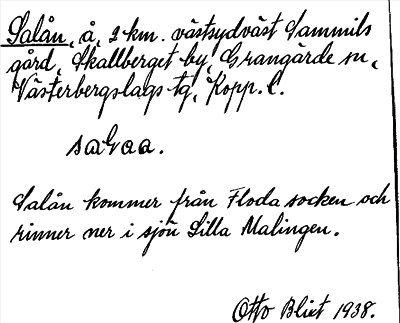 Salån, å, 2 km. västsydväst Sammils
gård, Skallberget by, Grangärde sn,
Västerbergslags tg, Kopp. l.
Salån kommer från Floda socken och
rinner ner i sjön Lilla Malingen.
Otto Blixt 1938.